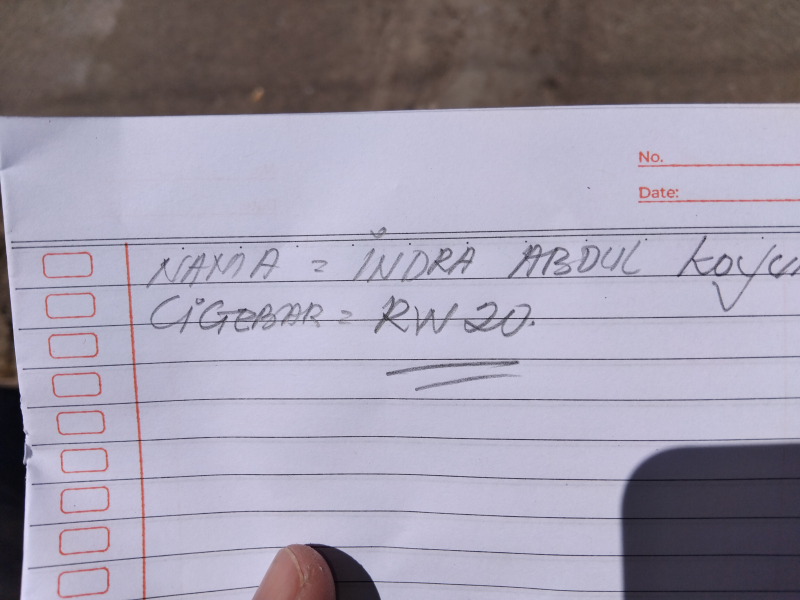 No.
Date:
NAMA = INDRA ABDUL
CIGEBAR = RW 20.